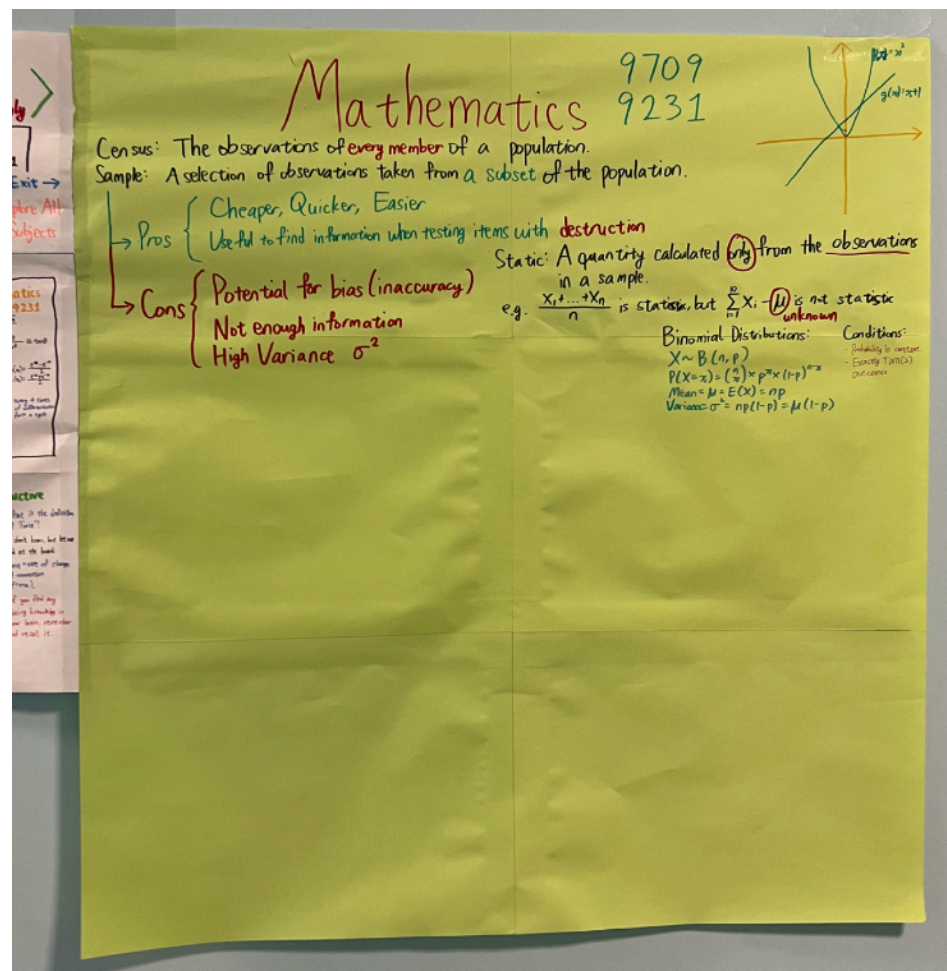 Mathematics
9709
9231
g(x)=x+1
Census: The observations of every member of a population.
Sample: A selection of observations taken from a subset of the population.
→ Pros { Cheaper, Quicker, Easier
Useful to find information when testing items with destruction
→ Cons { Potential for bias (inaccuracy)
Not enough information
High Variance σ²
Static: A quantity calculated only from the observations
in a sample.
e.g. (X₁+...+Xₙ)/n is statistic, but Σ Xᵢ - μ is not statistic
unknown
Binomial Distributions:
X~B(n,p)
P(X=x)=(n x)×pˣ×(1-p)ⁿ⁻ˣ
Mean=μ=E(X)=np
Variance=σ²=np(1-p)=μ(1-p)
Conditions:
- Probability is constant
- Exactly Two(2)
outcomes
Exit →
All
Subjects
9231